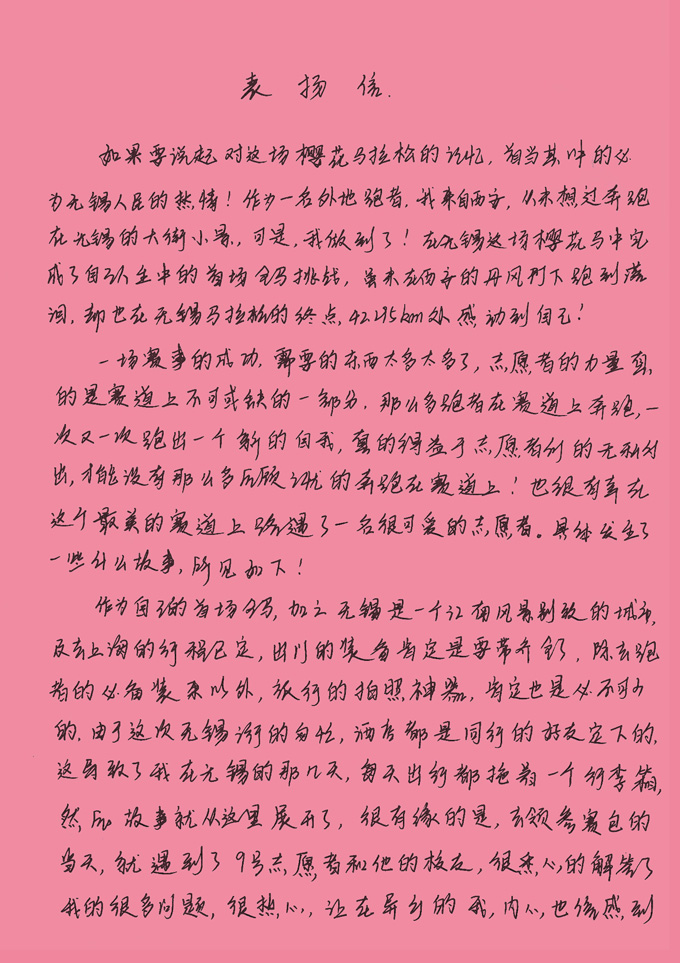 表扬信.
如果要说起对这场樱花马拉松的记忆,首当其冲的必
为无锡人民的热情!作为一名外地跑者,我来自西安,从未想过奔跑
在无锡的大街小景,可是,我做到了!在无锡这场樱花马中完
成了自己人生中的首场全马挑战,虽未在西安的丹凤门下跑到落
泪,却也在无锡马拉松的终点,42.195km处感动到自己!
一场赛事的成功,需要的东西太多太多了,志愿者的力量真
的是赛道上不可或缺的一部分,那么多跑者在赛道上奔跑,一
次又一次跑出一个新的自我,真的得益于志愿者们的无私付
出,才能没有那么多后顾之忧的奔跑在赛道上!也很有幸在
这个最美的赛道上路遇了一名很可爱的志愿者。具体发生了
一些什么故事,所见如下!
作为自己的首场全马,加之无锡是一个江南风景别致的城市,
及去上海的行程已定,出门的装备肯定是要带齐的,除去跑
者的必备装束以外,旅行的拍照神器,肯定也是必不可少
的.由于这次无锡之行的匆忙,酒店都是同行的好友定下的,
这导致了我在无锡的那几天,每天出行都拖着一个行李箱,
然后故事就从这里展开了,很有缘的是,去领参赛包的
当天,就遇到了9号志愿者和他的校友,很热心的解答了
我的很多问题,很热心,让在异乡的我,内心也倍感到